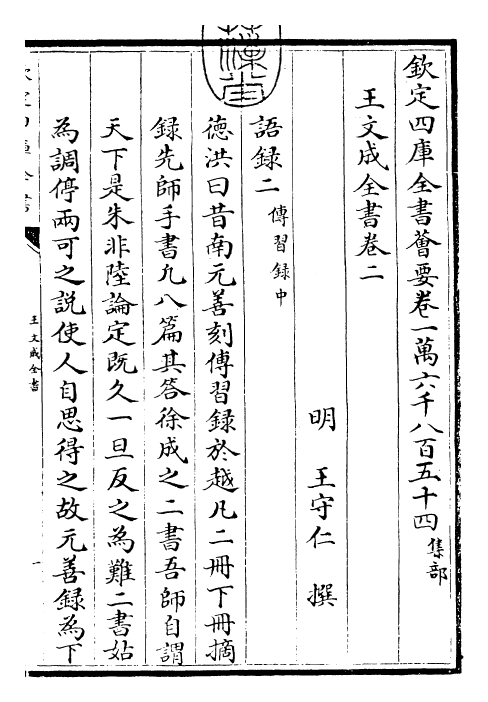 欽定四庫全書薈要卷一萬六千八百五十四 集部
王文成全書卷二
明 王守仁 撰
語録二 傳習録中
德洪曰昔南元善刻傳習録於越凡二冊下冊摘
録先師手書凡八篇其答徐成之二書吾師自謂
天下是朱非陸論定既久一旦反之為難二書姑
為調停兩可之説使人自思得之故元善録為下
王文成全書
一